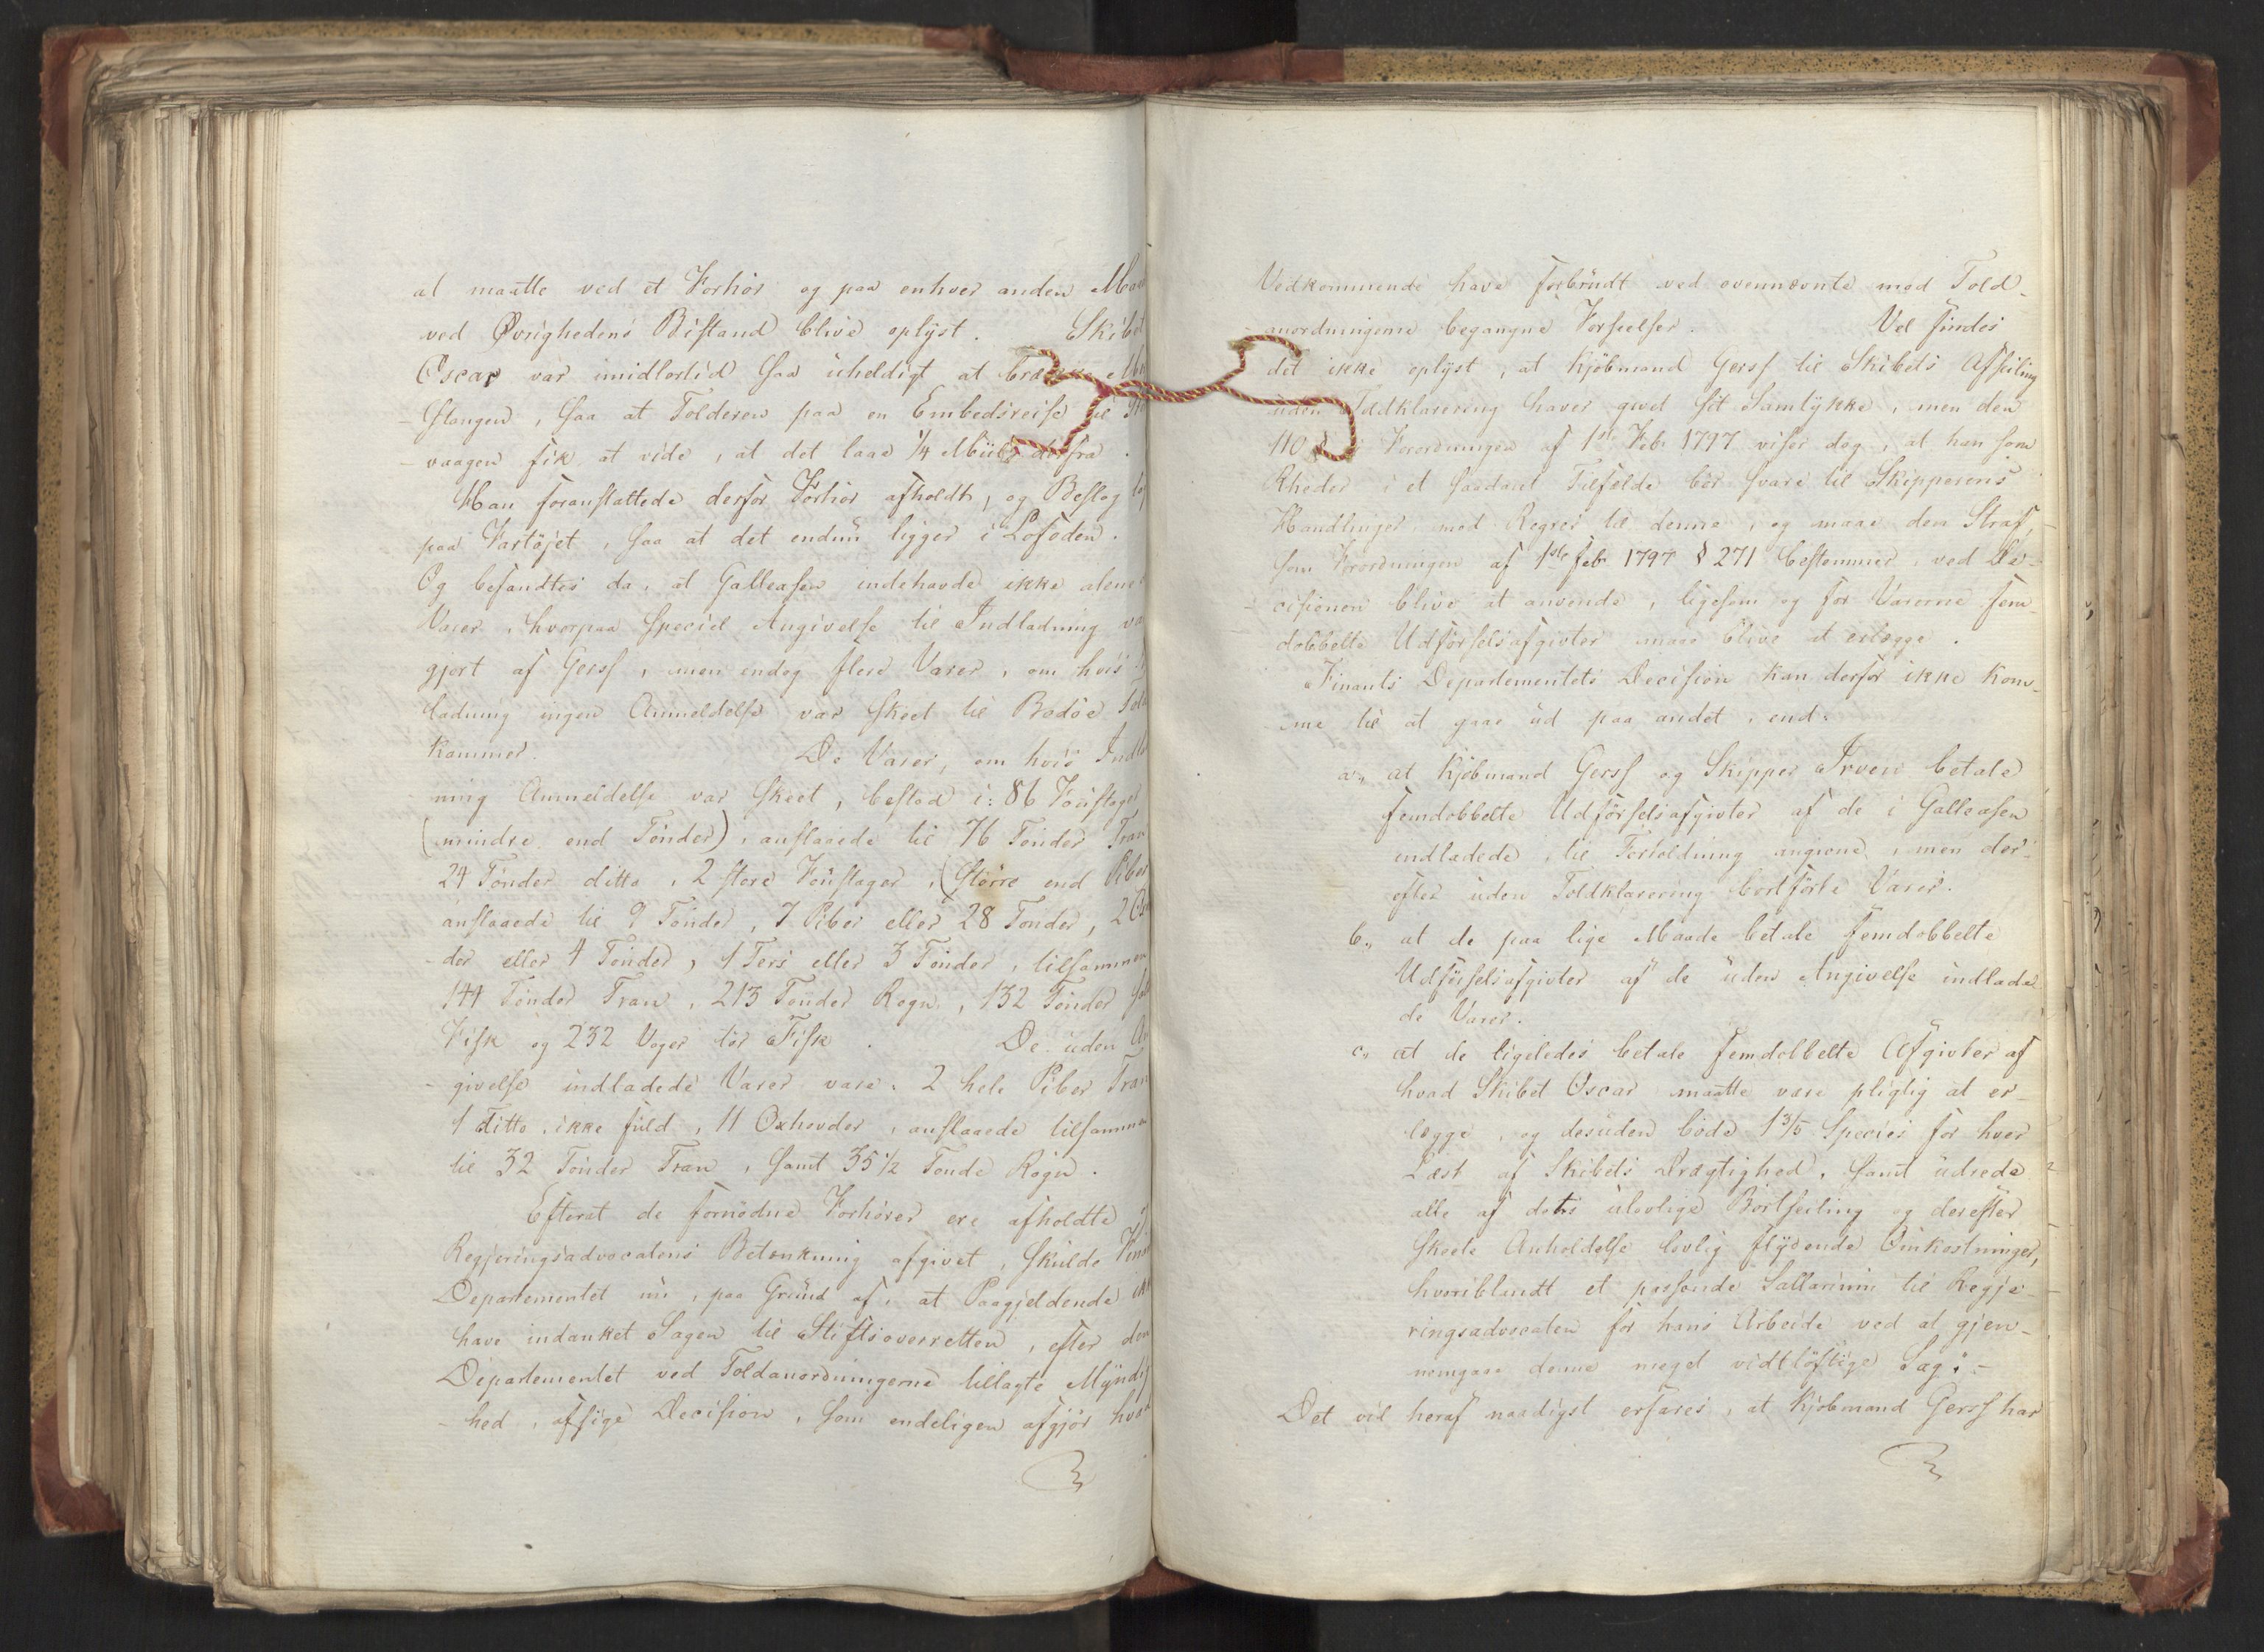 at maatte ved et Forhör og paa enhver anden Maa
ved Øvrighedens Bistand blive oplyst. Skibet
Oscar var imidlertid saa uheldigt at brække
stangen, saa at Tolderen paa en Embedsreise til
vaagen fik at vide, at det laae 1/4 Miil derfra.
Han foranstaltede derfor Forhör afholdt, og Beslag
paa Fartöjet, saa at det endnu ligger i Lofoden.
Og befandtes da, at Galleasen indehavde ikke alene
Varer, hvorpaa speciel Angivelse til Indladning va
gjort af Gerss, men endog flere Varer, om hvis
ladning ingen Anmeldelse var skeet til Bodöe Told
kammer. De Varer, om hvis Indla
ning Anmeldelse var skeet, bestod i: 86 Foustager
(mindre end Tönder), anslaaede til 76 Tönder Tran
24 Tönder ditto, 2 store Foustager, (större end Piber
anslaaede til 9 Tönder, 7 Piber eller 28 Tönder, 2 Ox
der eller 4 Tönder, 1 Ters eller 3 Tönder, tilsammen
144 Tönder Tran, 213 Tönder Rogn, 132 Tönder salt
Fisk og 232 Voger tör Fisk. De uden An
givelse indladede Varer vare: 2 hele Piber Tran
1 ditto, ikke fuld, 11 Oxhovder, anslaaede tilsammen
til 32 Tönder Tran, samt 35 1/2 Tönde Rogn.
Efterat de fornödne Forhörer ere afholdte,
Regjeringsadvocatens Betænkning afgivet, skulde Finants
Departementet nu, paa Grund af, at Paagjeldende ikke
have indanket Sagen til Stiftsoverretten, efter den
Departementet ved Toldanordningerne tillagte Myndig
hed, afsige Decision, som endeligen afgjör hvad
Vedkommende have forbrudt ved ovennævnte mod Told-
anordningerne begangne Forseelser. Vel findes
det ikke oplyst, at Kjöbmand Gerss til Skibets Afseiling
uden Toldklarering haver givet sit Samtykke, men den
110 § i Forordningen af 1ste Feb. 1797 viser dog, at han som
Rheder i et saadant Tilfælde bör svare til Skipperens
Handlinger med Regres til denne, og maae den Straf,
som Forordningen af 1ste Feb. 1797 § 271 bestemmer, ved De-
cisionen blive at anvende, ligesom og for Varerne fem-
dobbelte Udförselsafgivter maae blive at erlægge.
Finants Departementets Decision kan derfor ikke kom-
me til at gaae ud paa andet, end:
a., at Kjöbmand Gerss og Skipper Irven betale
femdobbelte Udförselsafgivter af de i Galleasen
indladede, til Fortoldning angivne, men der-
efter uden Toldklarering bortförte Varer.
b., at de paa lige Maade betale femdobbelte
Udförselsafgivter af de uden Angivelse indlade-
de Varer.
c., at de ligeledes betale femdobbelte Afgivter af
hvad Skibet Oscar maatte være pligtig at er-
lægge, og desuden böde 1 3/5 Species for hver
Læst af Skibets Drægtighed, samt udrede
alle af dets ulovlige Bortseiling og derefter
skeete Anholdelse lovlig flydende Omkostninger,
hvoriblandt et passende Sallarium til Regje-
ringsadvocaten for hans Arbeide ved at gjen-
nemgaae denne meget vidtlöftige Sag. -
Det vil heraf naadigst erfares, at Kjöbmand Gerss har